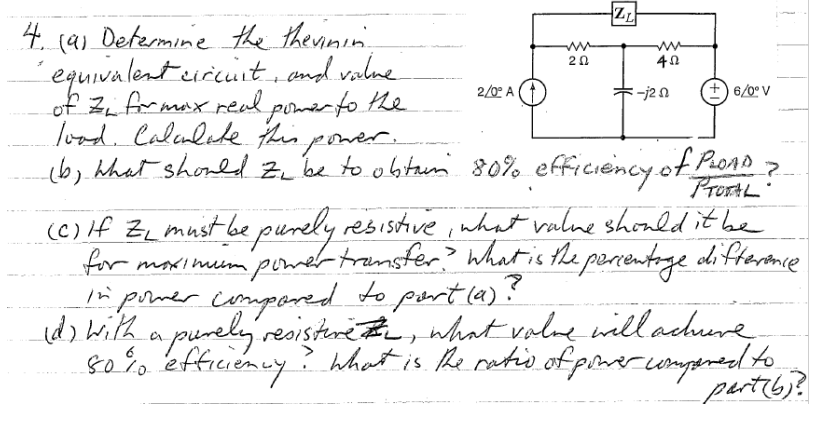 4. (a) Determine the thevinin
equivalent circuit, and value
of ZL for max real power to the
load. Calculate this power.
(b) What should ZL be to obtain 80% efficiency of PLOAD/PTOTAL?
(c) If ZL must be purely resistive, what value should it be
for maximum power transfer? What is the percentage difference
in power compared to part (a)?
(d) With a purely resistive ZL, what value will achieve
80% efficiency? What is the ratio of power compared to
part (b)?
ZL
2 Ω
4 Ω
2/0° A
-j2 Ω
+
6/0° V